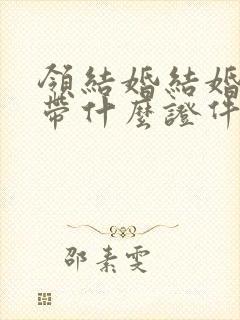 領結婚結婚
帶什麼證件
邵素雯